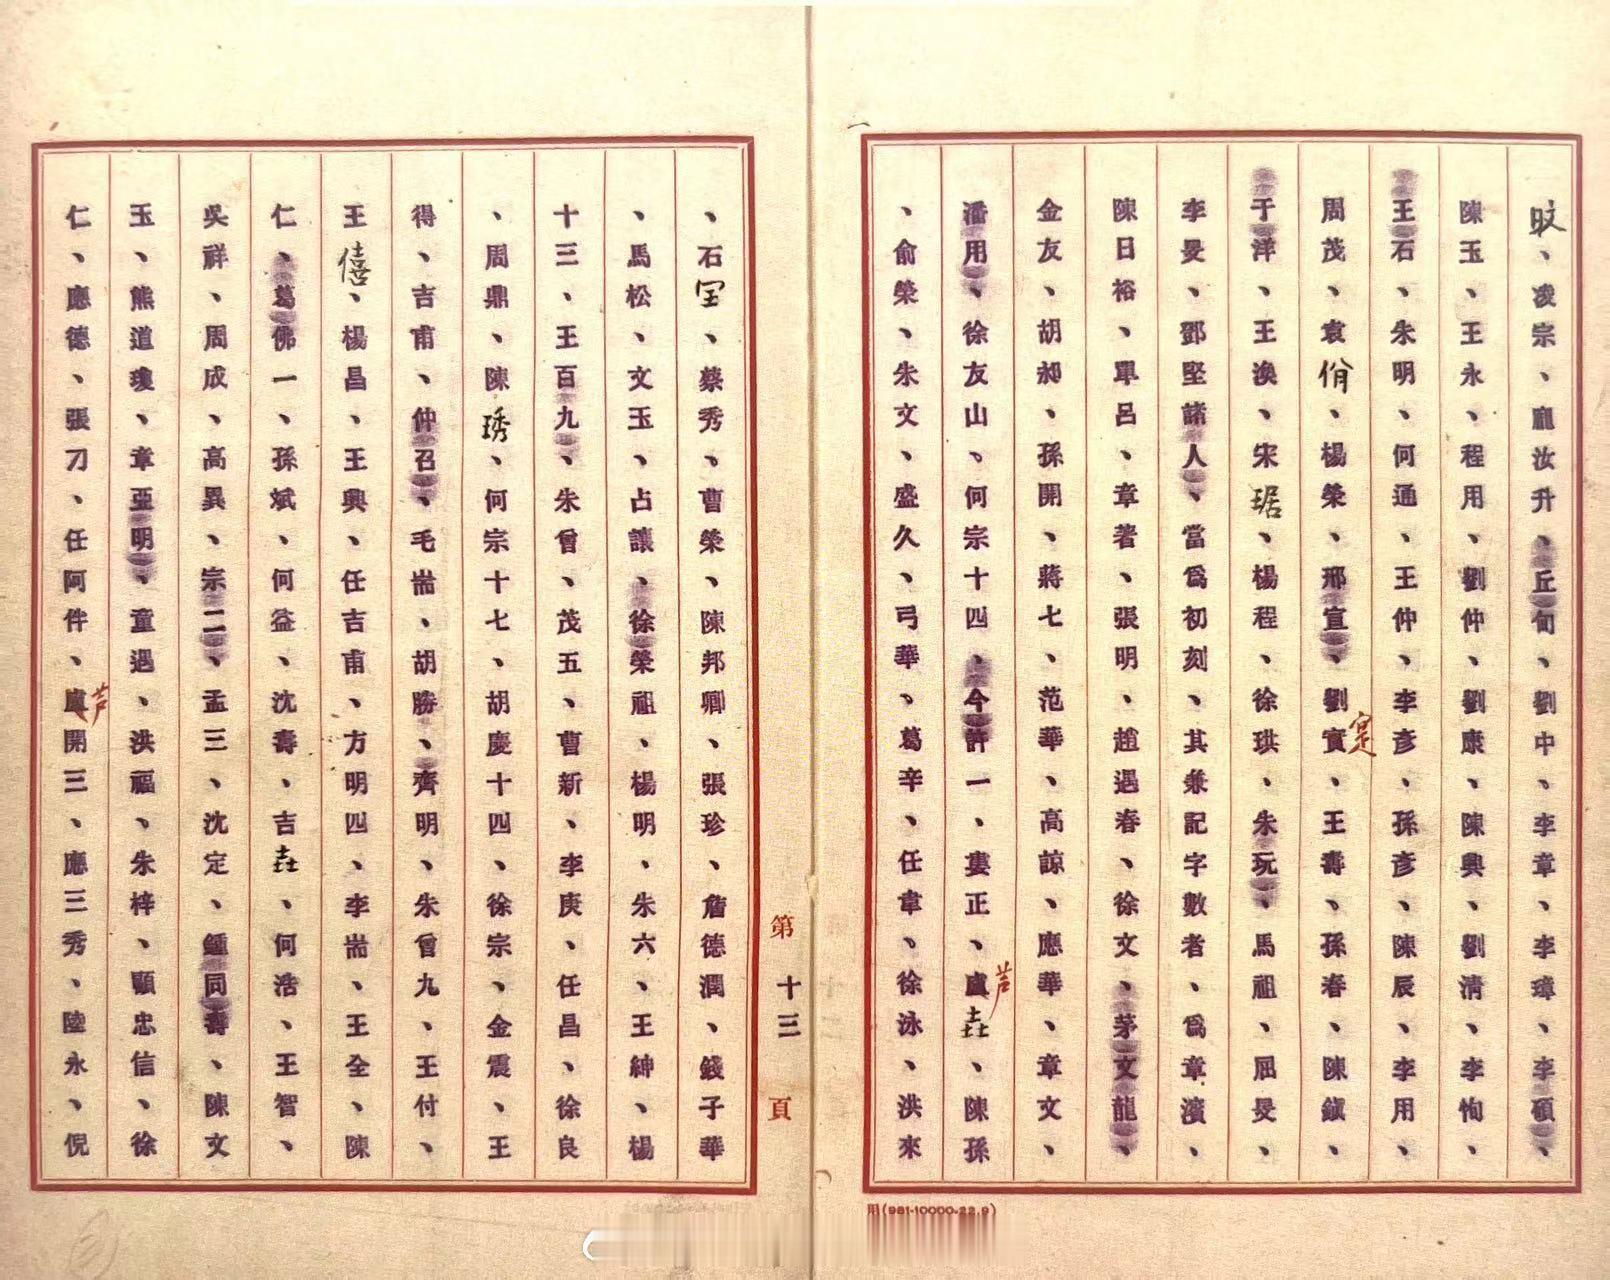 旼、凌宗、龐汝升、丘旬、劉中、李章、李璋、李碩、
陳玉、王永、程用、劉仲、劉康、陳興、劉清、李恂、
王石、朱明、何通、王仲、李彥、孫彥、陳辰、李用、
周茂、袁佾、楊榮、邢宣、劉實、王壽、孫春、陳鎮、
定
于洋、王渙、宋琚、楊程、徐珙、朱玩、馬祖、屈旻、
李旻、鄧堅諸人、當爲初刻、其兼記字數者、爲章濱、
陳日裕、單呂、章著、張明、趙遇春、徐文、茅文龍、
金友、胡昶、孫開、蔣七、范華、高諒、應華、章文、
潘用、徐友山、何宗十四、今許一、婁正、盧垚、陳孫
芦
、俞榮、朱文、盛久、弓華、葛辛、任韋、徐泳、洪來
用(981-10000-22.9)
第十三頁
、石宝、蔡秀、曹榮、陳邦卿、張珍、詹德潤、錢子華
、馬松、文玉、占讓、徐榮祖、楊明、朱六、王紳、楊
十三、王百九、朱曾、茂五、曹新、李庚、任昌、徐良
、周鼎、陳琇、何宗十七、胡慶十四、徐宗、金震、王
得、吉甫、仲召、毛耑、胡勝、齊明、朱曾九、王付、
王僖、楊昌、王興、任吉甫、方明四、李耑、王全、陳
仁、葛佛一、孫斌、何益、沈壽、吉垚、何浩、王智、
吳祥、周成、高異、宗二、孟三、沈定、鍾同壽、陳文
玉、熊道瓊、章亞明、童遇、洪福、朱梓、顧忠信、徐
仁、應德、張刀、任阿伴、盧開三、應三秀、陸永、倪
芦